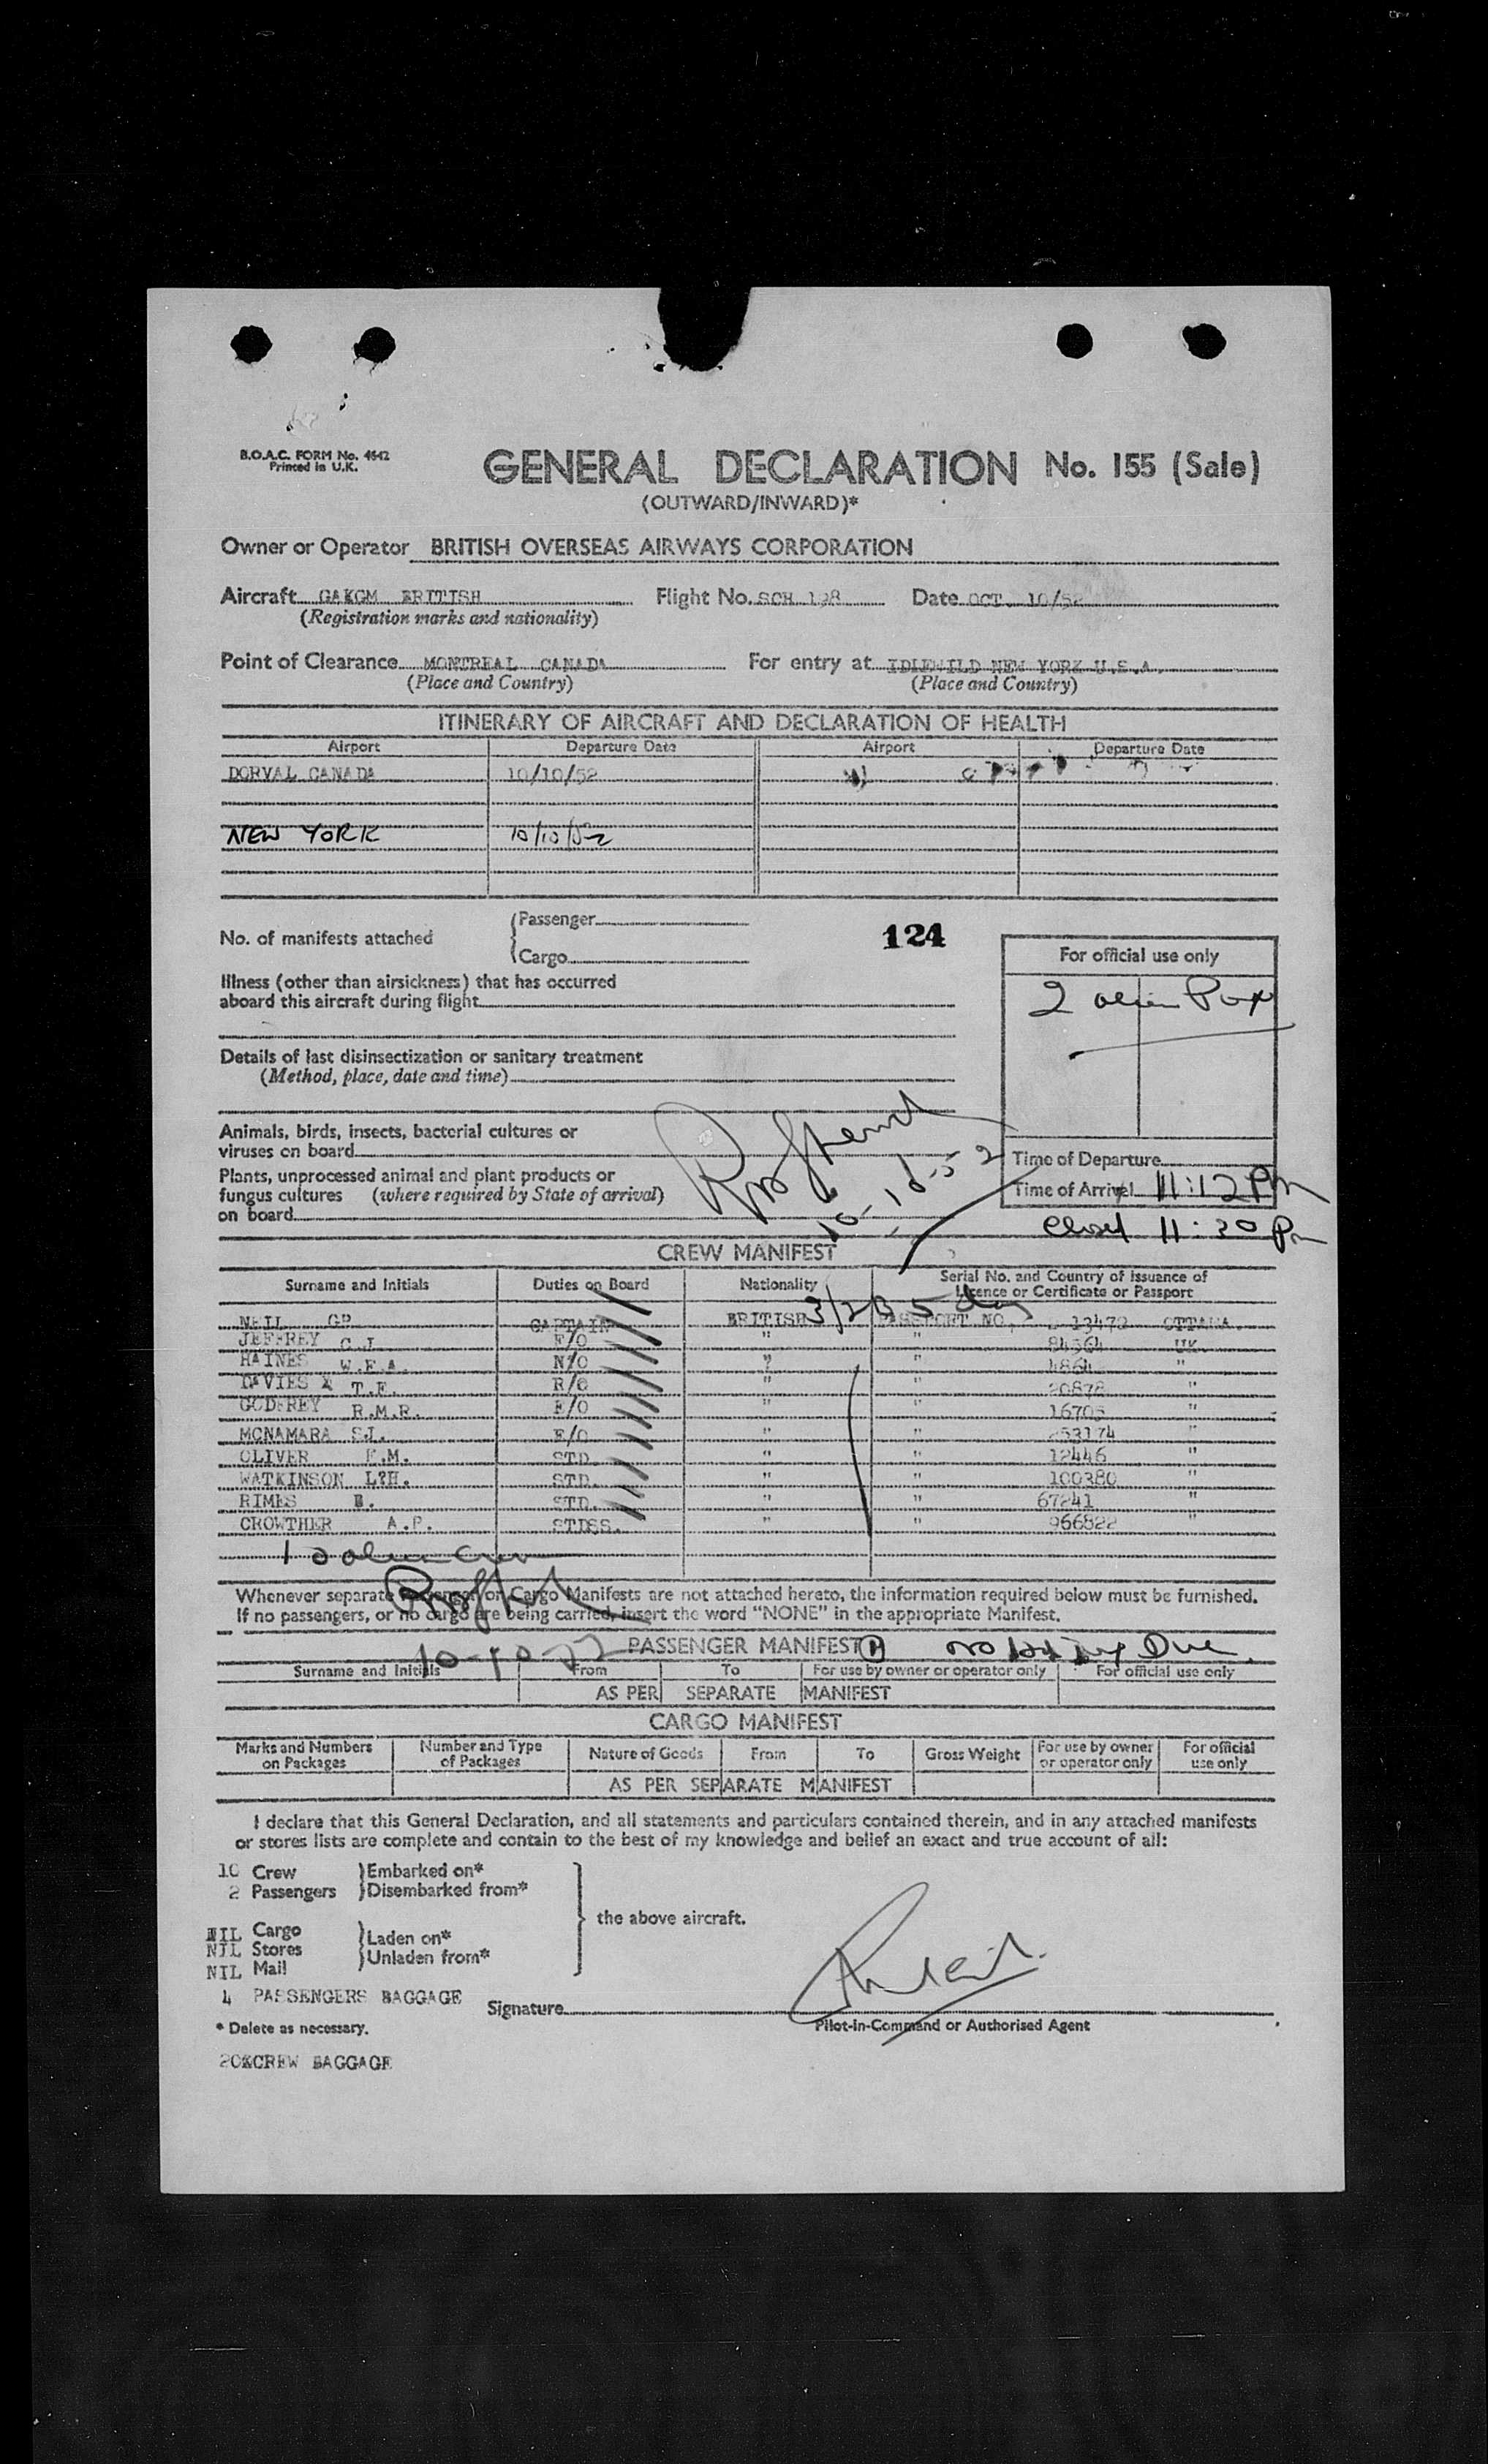 B.O.A.C. FORM No. 4642
Printed in U.K.
GENERAL DECLARATION No. 155 (Sale)
(OUTWARD/INWARD)*
Owner or Operator BRITISH OVERSEAS AIRWAYS CORPORATION
Aircraft GAKGM BRITISH Flight No. SCH 198 Date OCT. 10/52
(Registration marks and nationality)
Point of Clearance MONTREAL CANADA For entry at IDLEWILD NEW YORK U.S.A.
(Place and Country) (Place and Country)
ITINERARY OF AIRCRAFT AND DECLARATION OF HEALTH
Airport Departure Date Airport Departure Date
DORVAL CANADA 10/10/52
NEW YORK 10/10/52
No. of manifests attached
Passenger
Cargo
124
For official use only
2 alien Pax
Illness (other than airsickness) that has occurred
aboard this aircraft during flight
Details of last disinsectization or sanitary treatment
(Method, place, date and time)
Animals, birds, insects, bacterial cultures or
viruses on board
Plants, unprocessed animal and plant products or
fungus cultures (where required by State of arrival)
on board
10-10-52
Time of Departure
Time of Arrival 11:12 Pm
Closed 11:30 Pm
CREW MANIFEST
Surname and Initials Duties on Board Nationality Serial No. and Country of issuance of
Licence or Certificate or Passport
3/2B 5 day
NEIL GP CAPTAIN BRITISH PASSPORT NO. 13472 OTTAWA.
JEFFREY C.J. F/O " " 84564 UK
HAINES W.E.A. N/O " " "
DAVIES X T.E. R/O " " 20878 "
GODFREY R.M.R. E/O " " "
MCNAMARA SJ. E/O " " 253174 "
OLIVER F.M. STD. " " 12446 "
WATKINSON L?H. STD. " " 100380 "
RIMES STD. " " 67241 "
CROWTHER A.P. STDSS. " " 966822 "
10 alien Crew
Whenever separate Passenger or Cargo Manifests are not attached hereto, the information required below must be furnished.
If no passengers, or no cargo are being carried, insert the word "NONE" in the appropriate Manifest.
PASSENGER MANIFEST
Surname and Initials From To For use by owner or operator only For official use only
AS PER SEPARATE MANIFEST
CARGO MANIFEST
Marks and Numbers on Packages Number and Type of Packages Nature of Goods From To Gross Weight For use by owner or operator only For official use only
AS PER SEPARATE MANIFEST
I declare that this General Declaration, and all statements and particulars contained therein, and in any attached manifests
or stores lists are complete and contain to the best of my knowledge and belief an exact and true account of all:
10 Crew Embarked on*
2 Passengers Disembarked from*
the above aircraft.
NIL Cargo Laden on*
NIL Stores Unladen from*
NIL Mail
4 PASSENGERS BAGGAGE
Signature
Pilot-in-Command or Authorised Agent
* Delete as necessary.
20XCREW BAGGAGE